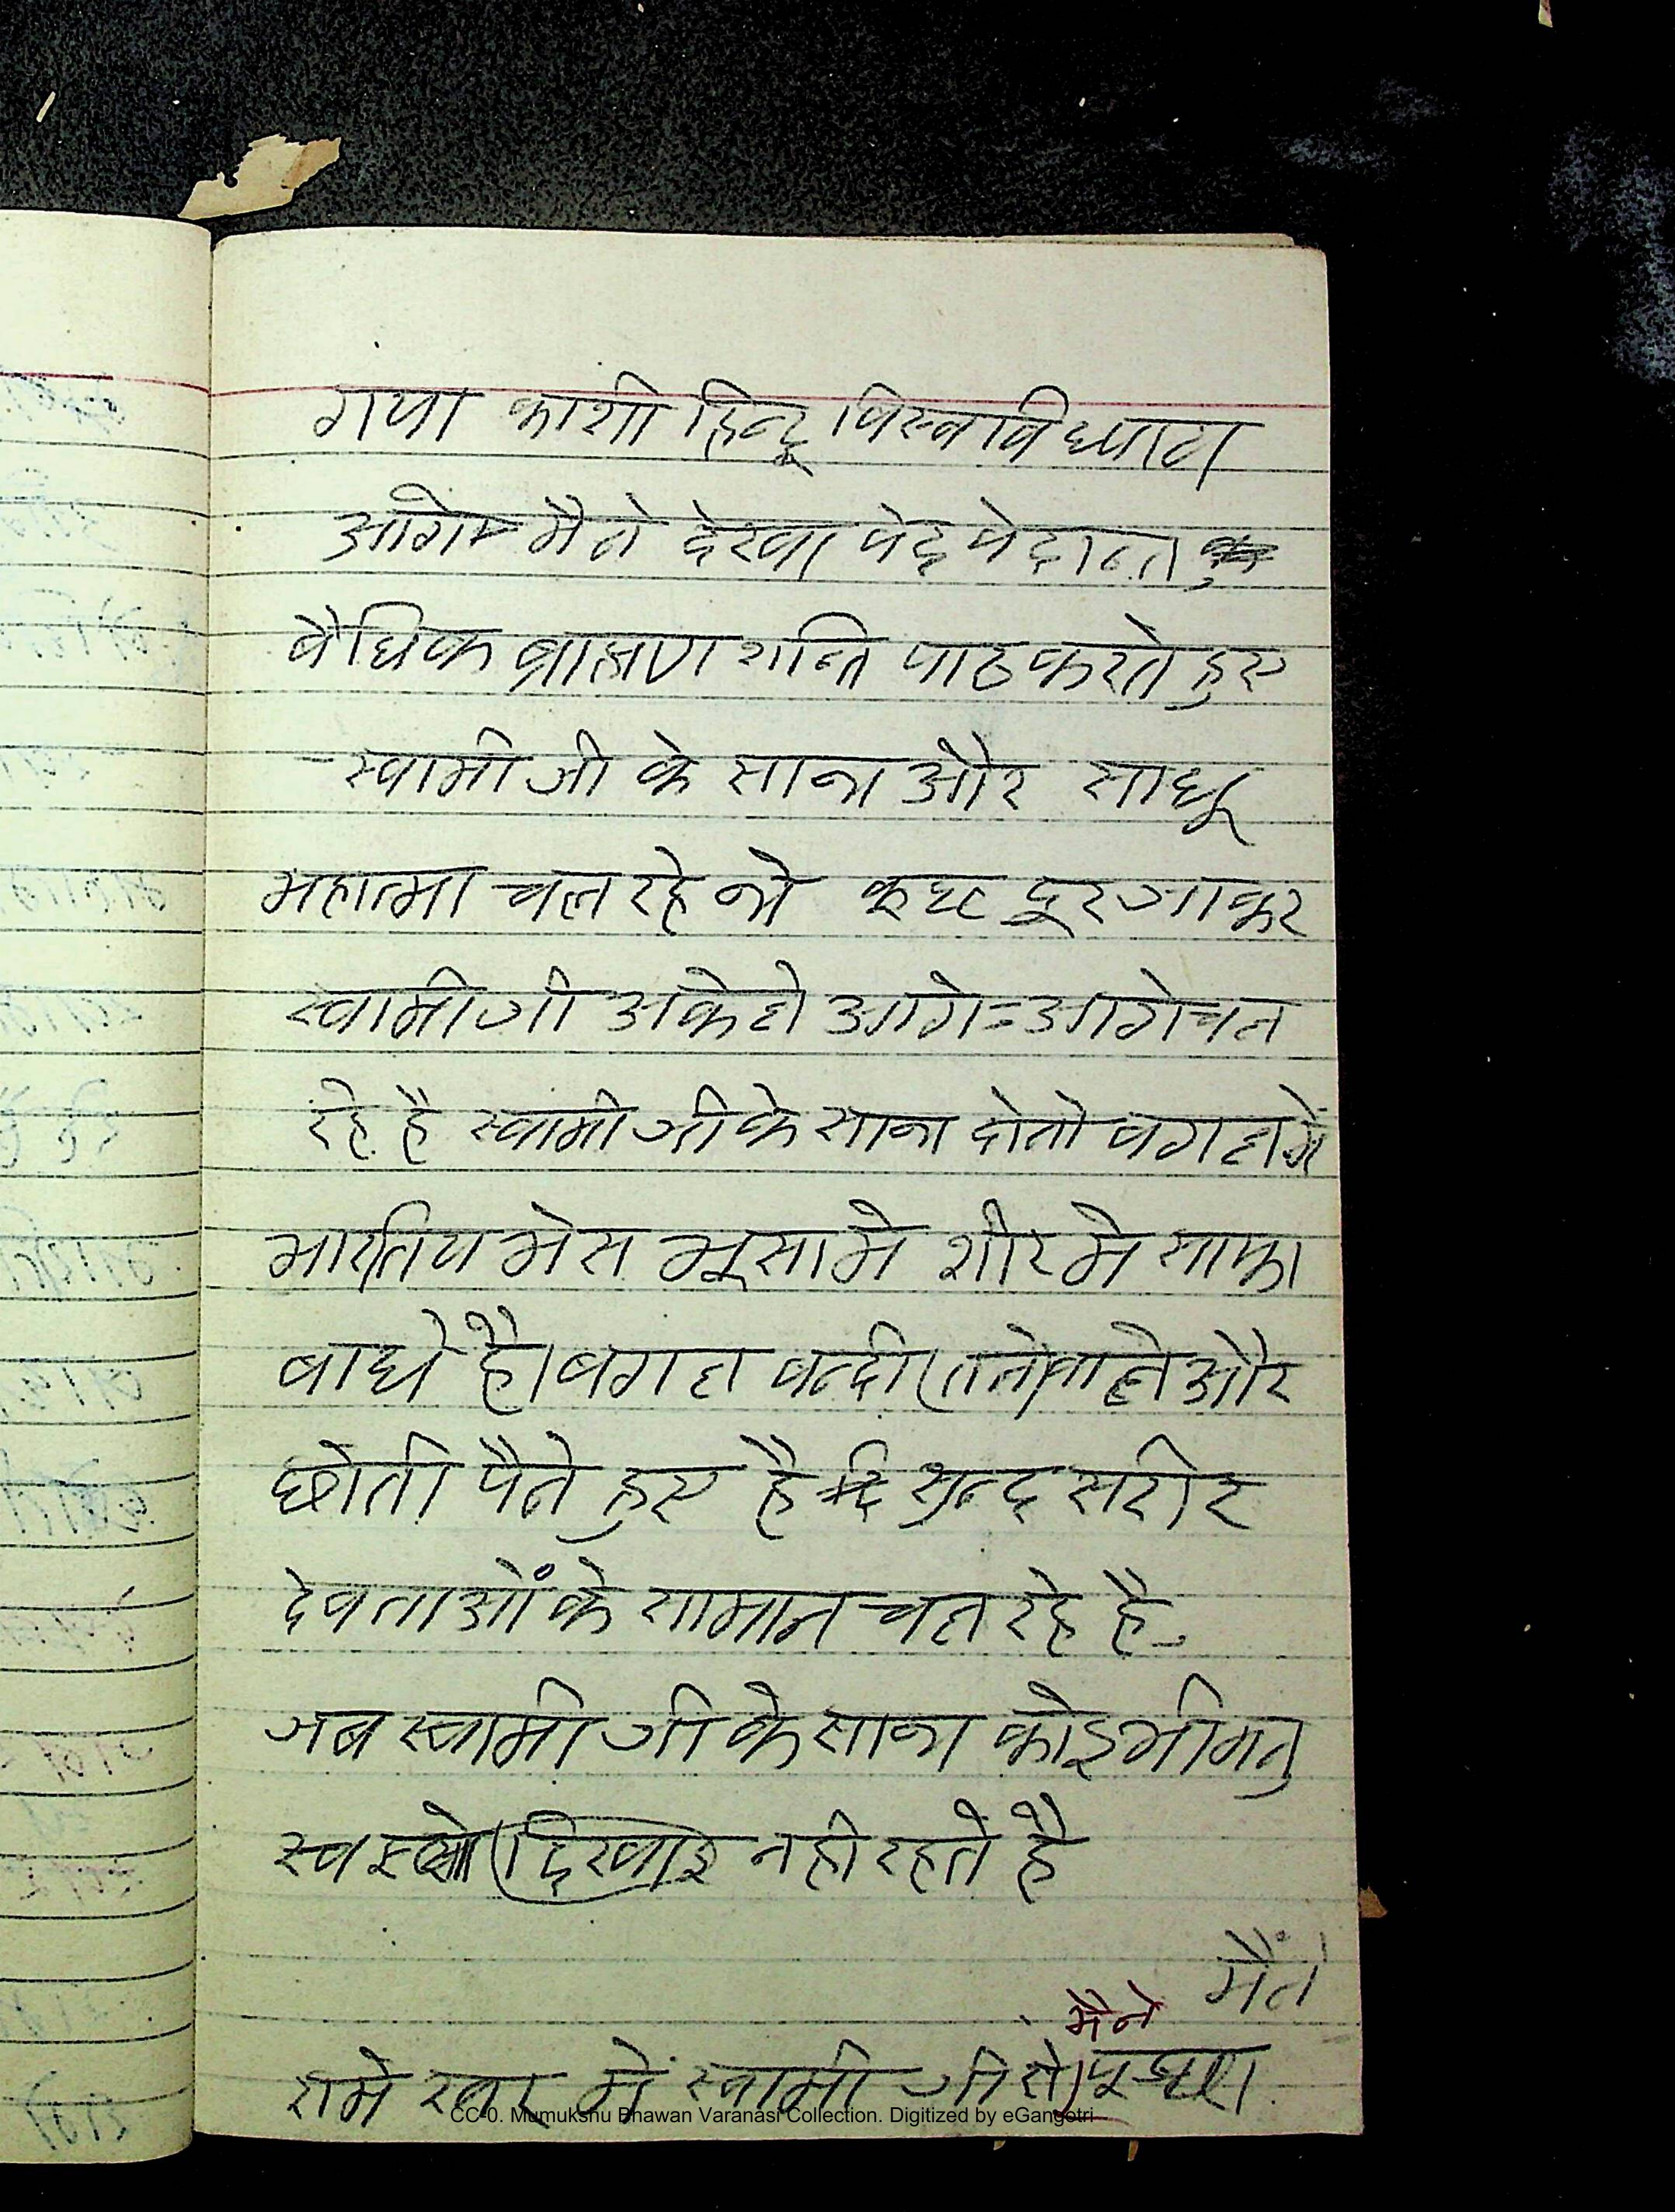 गया काशी हिन्दू विस्वविध्याल
आगे मैने देखा वेद वेदान्त
वैधिक ब्राह्मण शान्ति पाठ करते हुए
स्वामी जी के साथ और साधू
महात्मा चल रहे थे कुछ दूर जाकर
स्वामी जी अकेले आगे=आगे चल
रहे है स्वामी जी के साथ दोनो बगल में
भारतिय भेस भूसा मे शीर मे साफा
बाधे है। बगल बन्दी और
धोती पैने हुए है सुन्द्र सरीर
देवताओं के सामान चल रहे है
जब स्वामी जी के साथ कोइ भी
दिखाइ नही रहते है
मैंने
मैने
रामेस्वर में स्वामी जी से पूछा
CC-0. Mumukshu Bhawan Varanasi Collection. Digitized by eGangotri